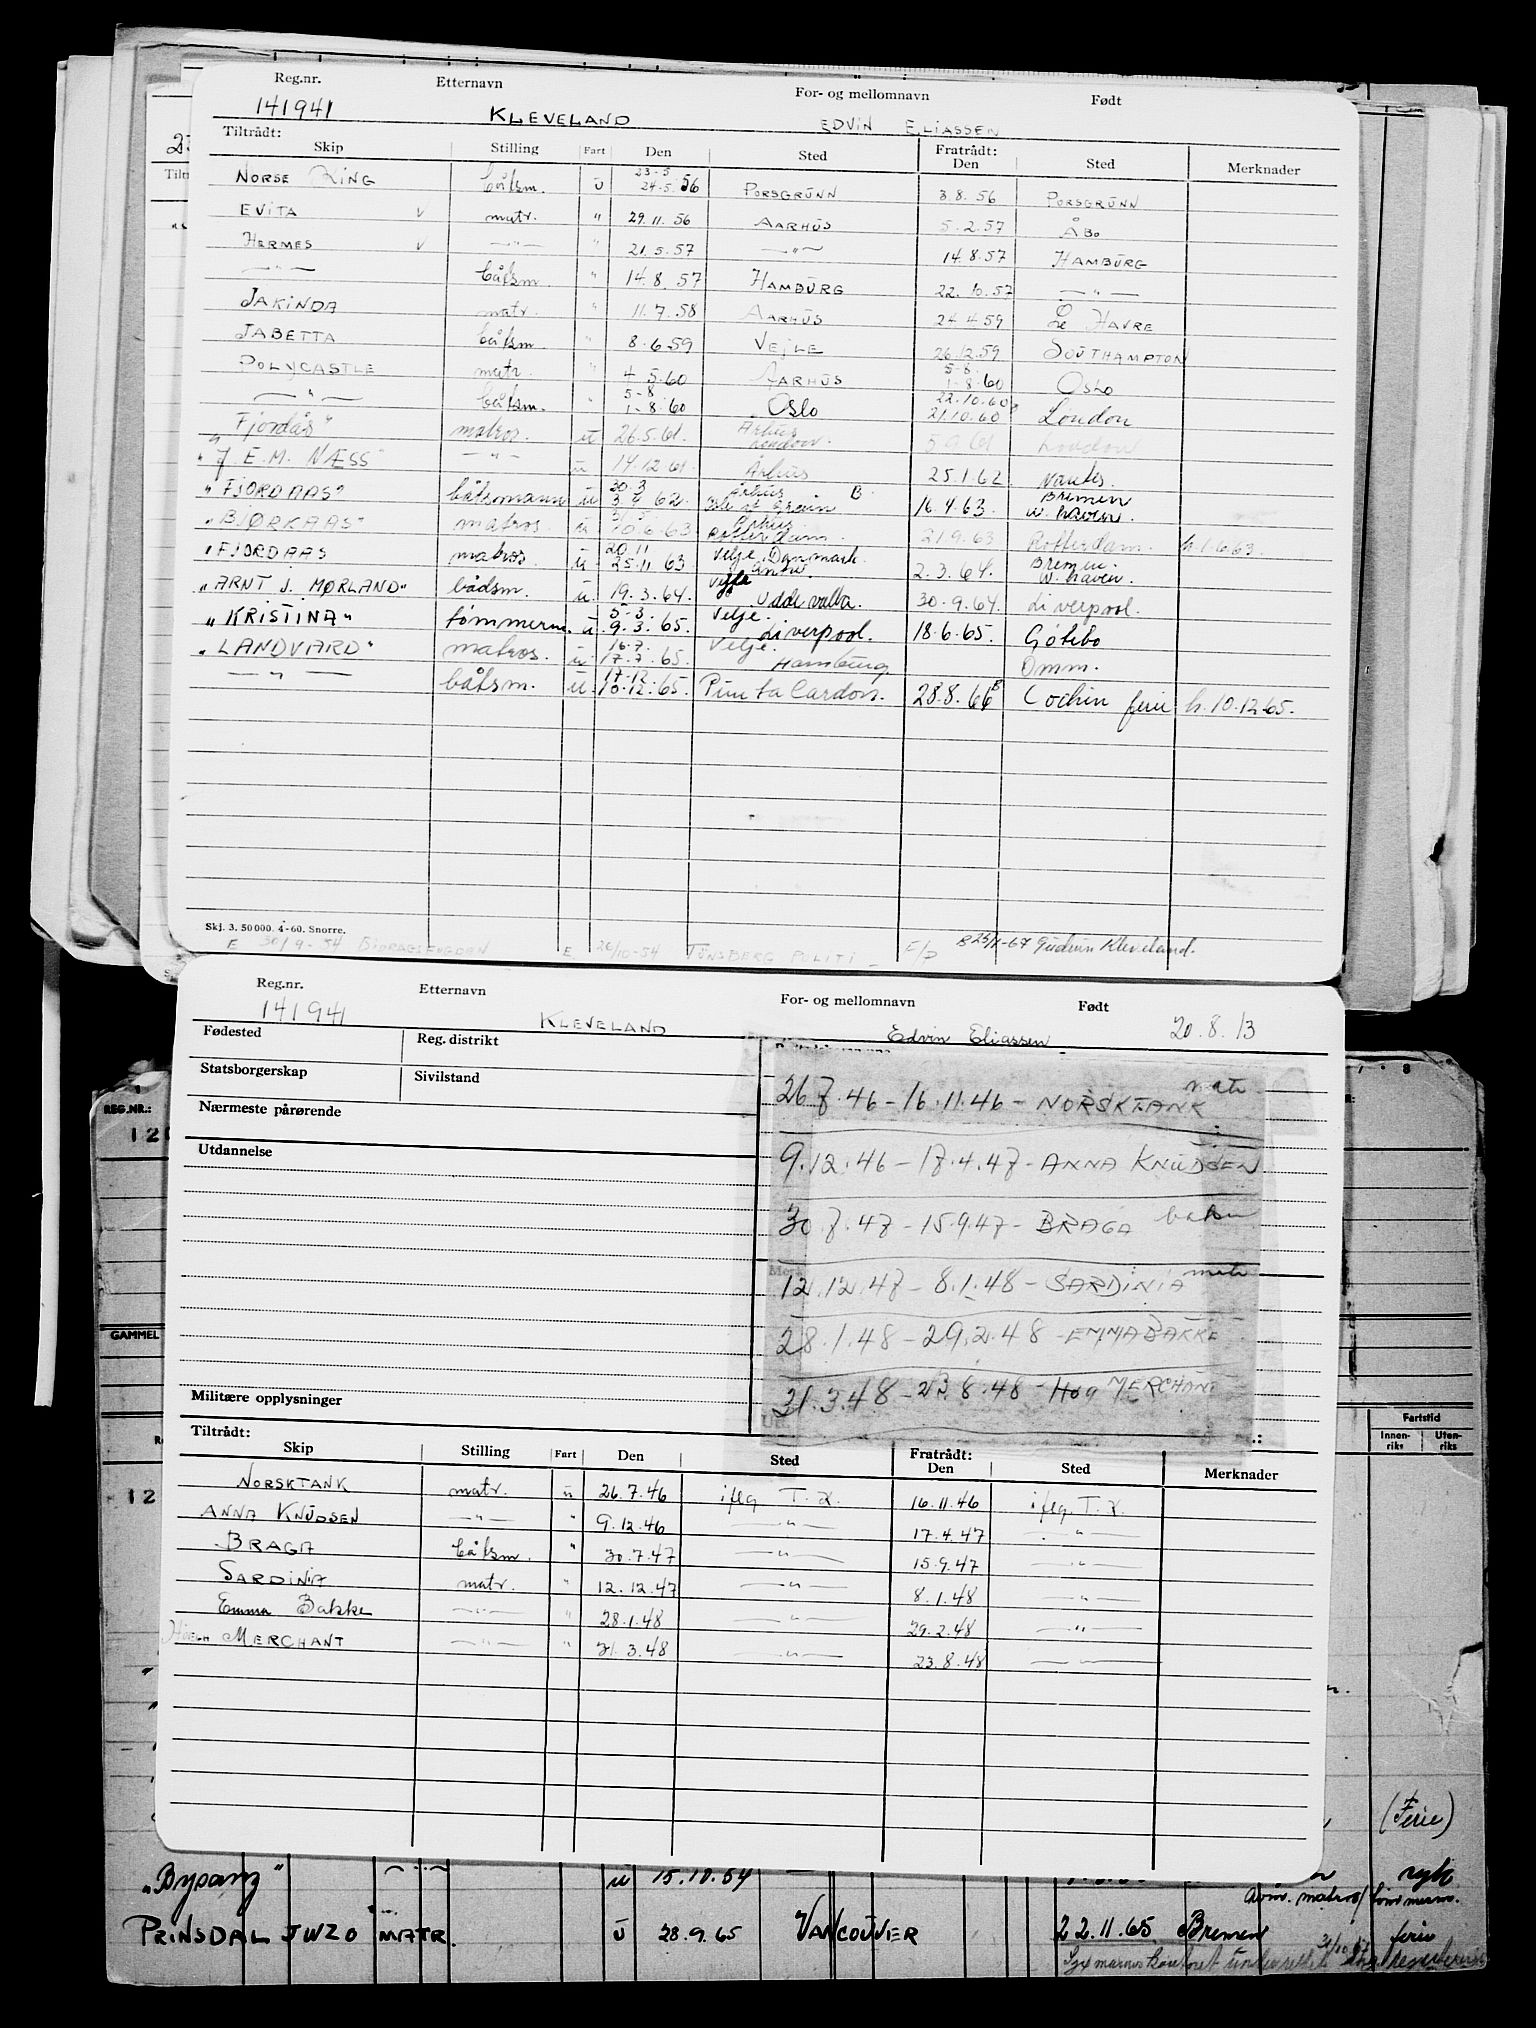 Reg.nr. Etternavn For- og mellomnavn Født
141941 KLEVELAND EDVIN ELIASSEN
Tiltrådt: Fratrådt:
Skip Stilling Fart Den Sted Den Sted Merknader
NORSE KING båtsm. u 23-5 24.5.56 PORSGRUNN 3.8.56 PORSGRUNN
EVITA √ matr. " 29.11.56 AARHUS 5.2.57 ÅBO
HERMES √ —"— " 21.5.57 —"— 14.8.57 HAMBURG
—"— båtsm. " 14.8.57 HAMBURG 22.10.57 —"—
JAKINDA matr. " 11.7.58 AARHUS 24.4.59 LE HAVRE
JABETTA båtsm. " 8.6.59 VEJLE 26.12.59 SOUTHAMPTON
POLYCASTLE matr. " 4.5.60 AARHUS 5-8. 1-8.60 OSLO
—"— båtsm. " 5-8 1-8.60 Oslo 22.10.60 21.10.60 London
"Fjordås" matros. u 26.5.61. Århus London. London
"J.E.M. NÆSS" —"— u 14.12.61 Århus 25.1.62 Nantes.
"FJORDAAS" båtsmann u 62. Århus B. 16.4.63. Bremen W. haven.
"BJØRKAAS" matros. u 63. Århus Rotterdam. 21.9.63 Rotterdam. h.1.6.63.
"FJORDAAS matros. u 20.11 25.11 63 Velje Danmark 2.3.64. Bremen. W. haven.
"ARNT J. MØRLAND" bådsm. u. 19.3.64. Vejle Uddevalla. 30.9.64. Liverpool.
"KRISTINA" tømmerm. u 5-3. 9.3.65. Velje. Liverpool. 18.6.65. Gøtebo
"LANDVARD" matros. u 16.7. 17.7.65. Velje. Hamburg Omm.
—"— båtsm. u. 17.12. 10.12.65. Punta Cardon. 28.8.66 Cochin ferie h.10.12.65.
Skj. 3. 50 000. 4-60. Snorre.
E 30/9-54 BIDRAGSFOGDEN E 26/10-54 TØNSBERG POLITI – Gudrun Kleveland.
Reg.nr. Etternavn For- og mellomnavn Født
141941 KLEVELAND Edvin Eliassen 20.8.13
Fødested Reg. distrikt
Statsborgerskap Sivilstand
Nærmeste pårørende
Utdannelse
26.7.46 – 16.11.46 – NORSKTANK matr
9.12.46 – 17.4.47 – ANNA KNUDSEN
30.7.47 – 15.9.47 – BRAGA båtsm
12.12.47 – 8.1.48 – SARDINIA matr
28.1.48 – 29.2.48 – EMMA BAKKE
31.3.48 – 23.8.48 – Høg MERCHANT
Militære opplysninger
Tiltrådt: Fratrådt:
Skip Stilling Fart Den Sted Den Sted Merknader
NORSKTANK matr. u 26.7.46 iflg T.K. 16.11.46 iflg T.K.
ANNA KNUDSEN —"— " 9.12.46 —"— 17.4.47 —"—
BRAGA båtsm. " 30.7.47 —"— 15.9.47 —"—
SARDINIA matr. " 12.12.47 —"— 8.1.48 —"—
Emma Bakke —"— " 28.1.48 —"— 29.2.48 —"—
HØEGH MERCHANT —"— " 31.3.48 —"— 23.8.48 —"—
REG.NR.:
GAMMEL
Fartstid
Innenriks Utenriks
(Ferie)
"Bysanz" —"— u 15.10.54
matros/tømmerm.
PRINSDAL JWZO MATR. u 28.9.65 VANCOUVER 22.11.65 Bremen ferie